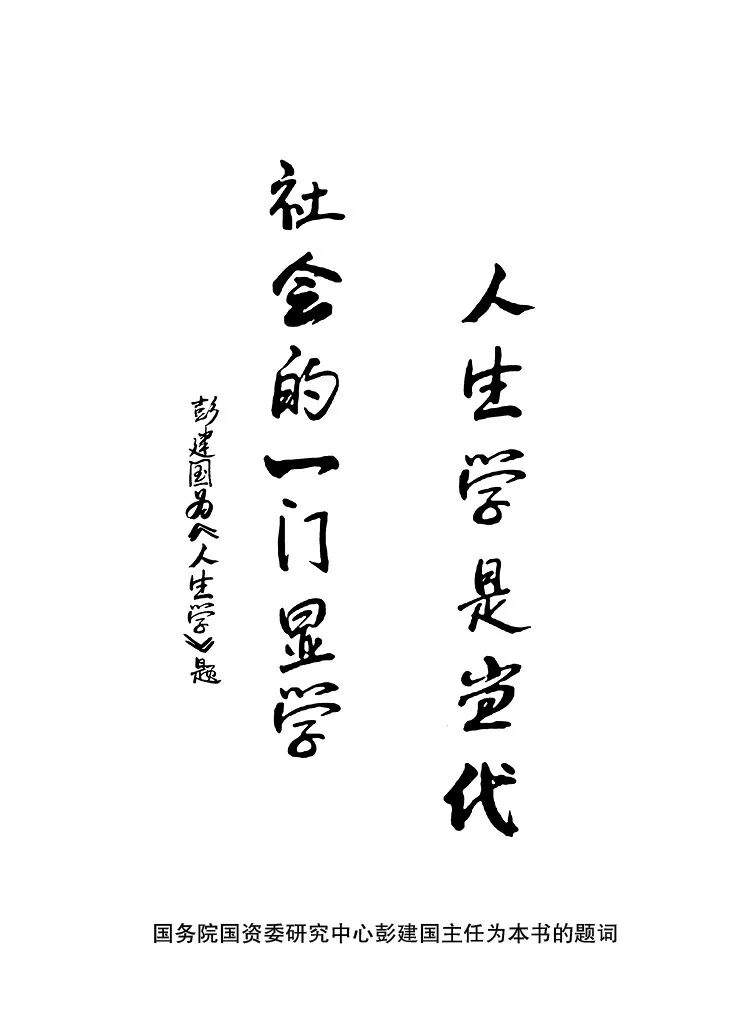 人生学是当代
社会的一门显学
彭建国为《人生学》题
国务院国资委研究中心彭建国主任为本书的题词